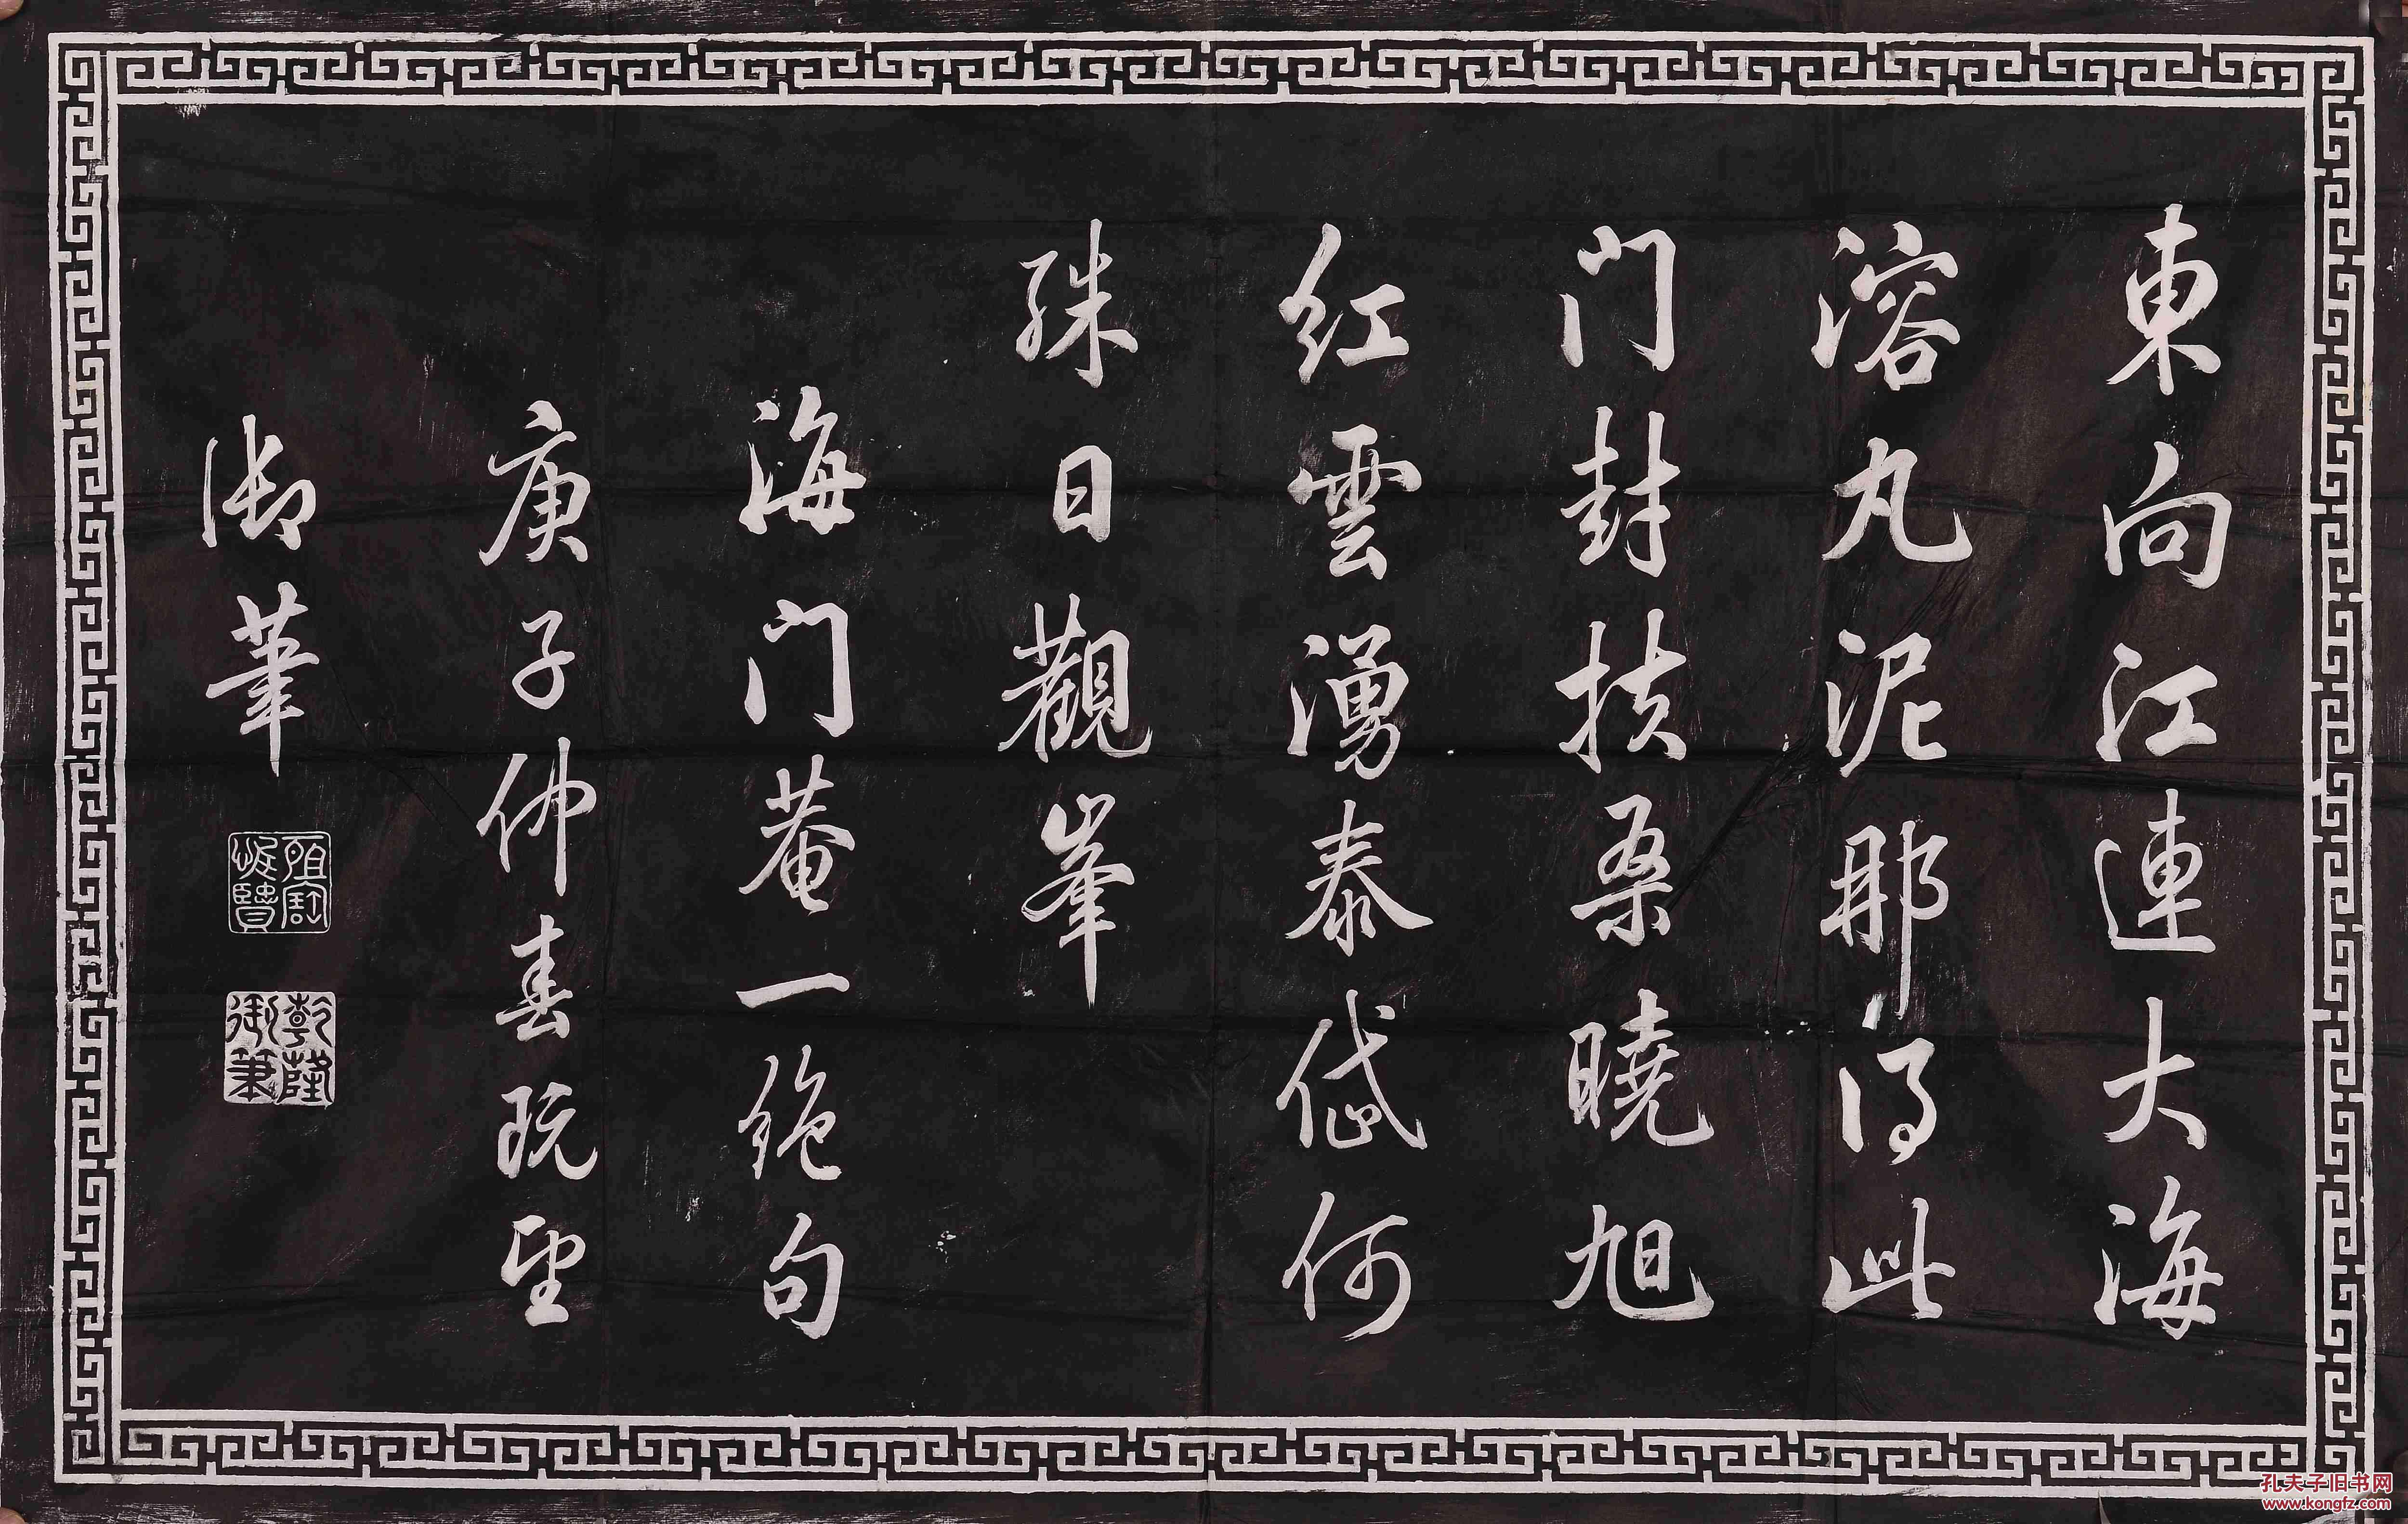 東向江連大海
溶丸泥那得此
門封扶桑曉旭
紅雲湧泰岱何
殊日觀峯
海門菴一絕句
庚子仲春既望
御筆
所寶惟賢
乾隆御筆
孔夫子旧书网
www.kongfz.com